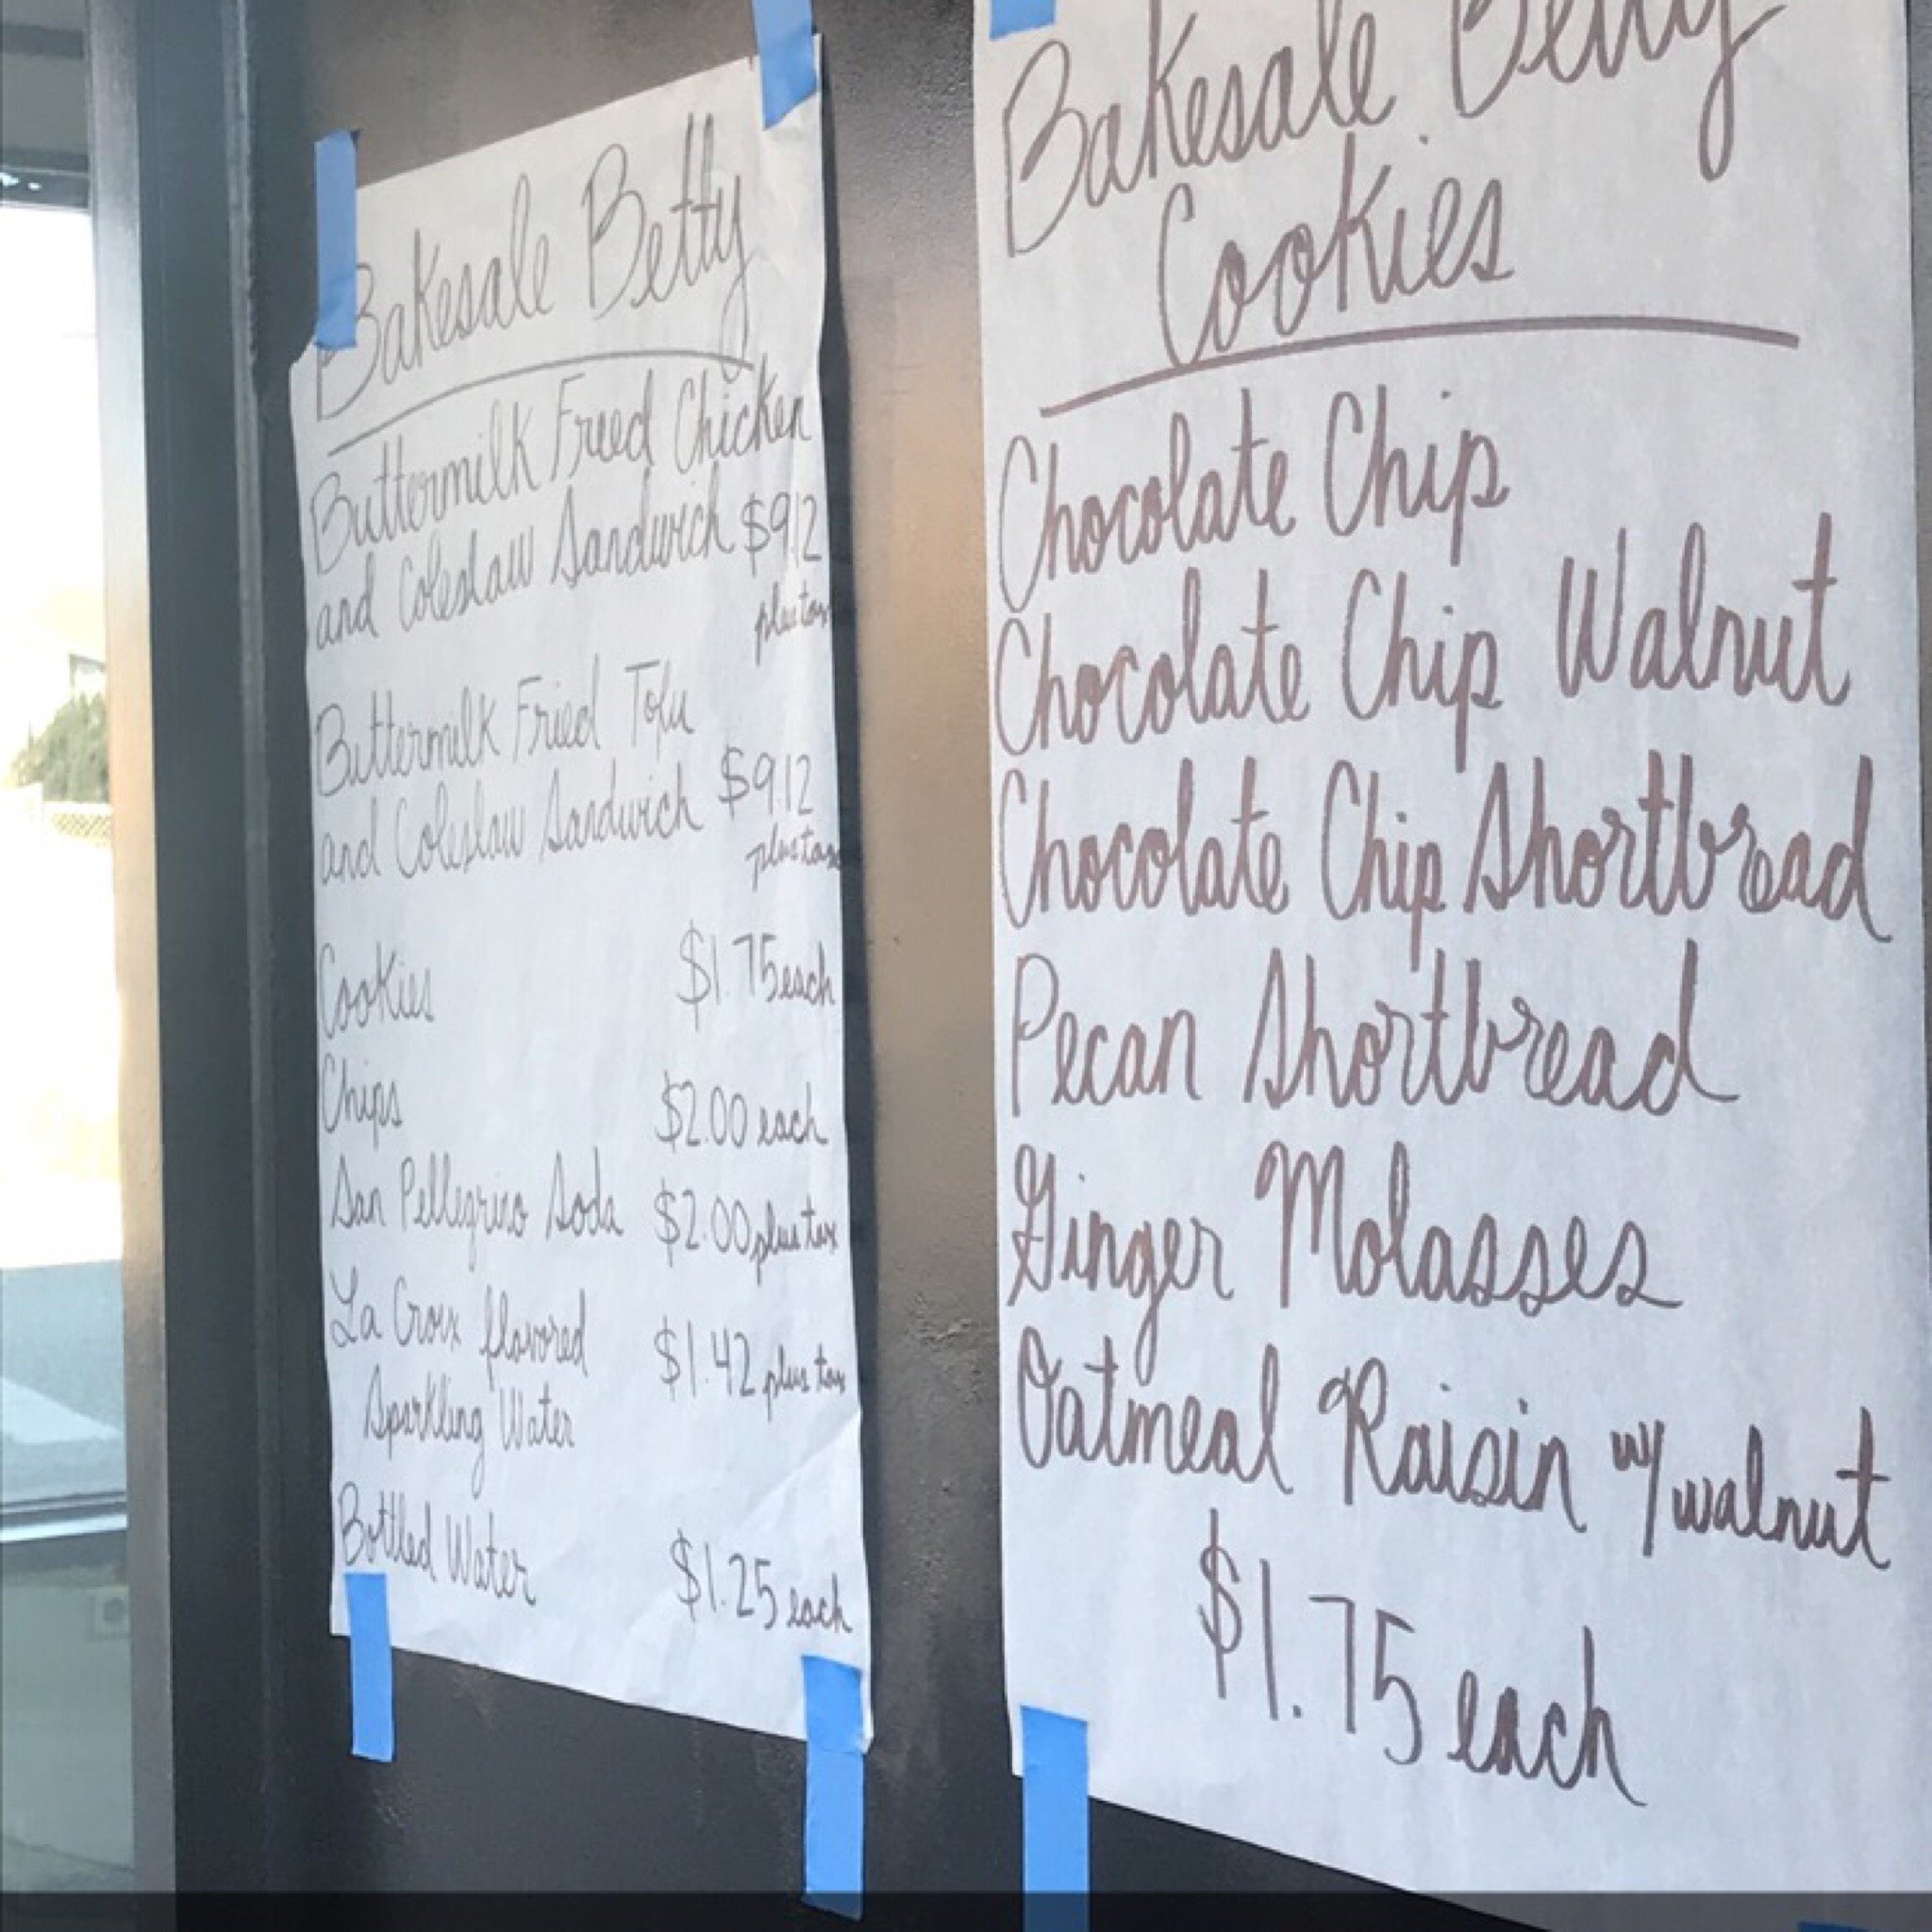 Bakesale Betty
Buttermilk Fried Chicken
and Coleslaw Sandwich $9.12
plus tax
Buttermilk Fried Tofu
and Coleslaw Sandwich $9.12
plus tax
Cookies $1.75 each
Chips $2.00 each
San Pellegrino Soda $2.00 plus tax
La Croix flavored $1.42 plus tax
Sparkling Water
Bottled Water $1.25 each
Bakesale Betty
Cookies
Chocolate Chip
Chocolate Chip Walnut
Chocolate Chip Shortbread
Pecan Shortbread
Ginger Molasses
Oatmeal Raisin w/ walnut
$1.75 each